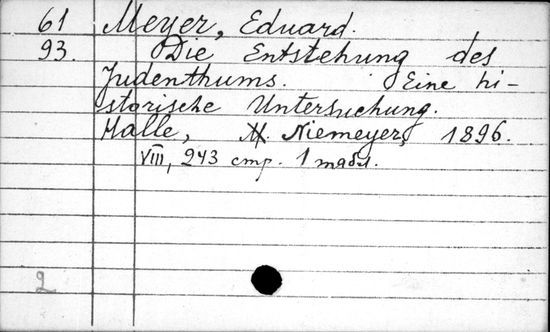 61 Meyer, Eduard.
93. Die Entstehung des
Judenthums. Eine hi-
storische Untersuchung.
Halle, M. Niemeyer, 1896.
VIII, 243 стр. 1 табл.
2